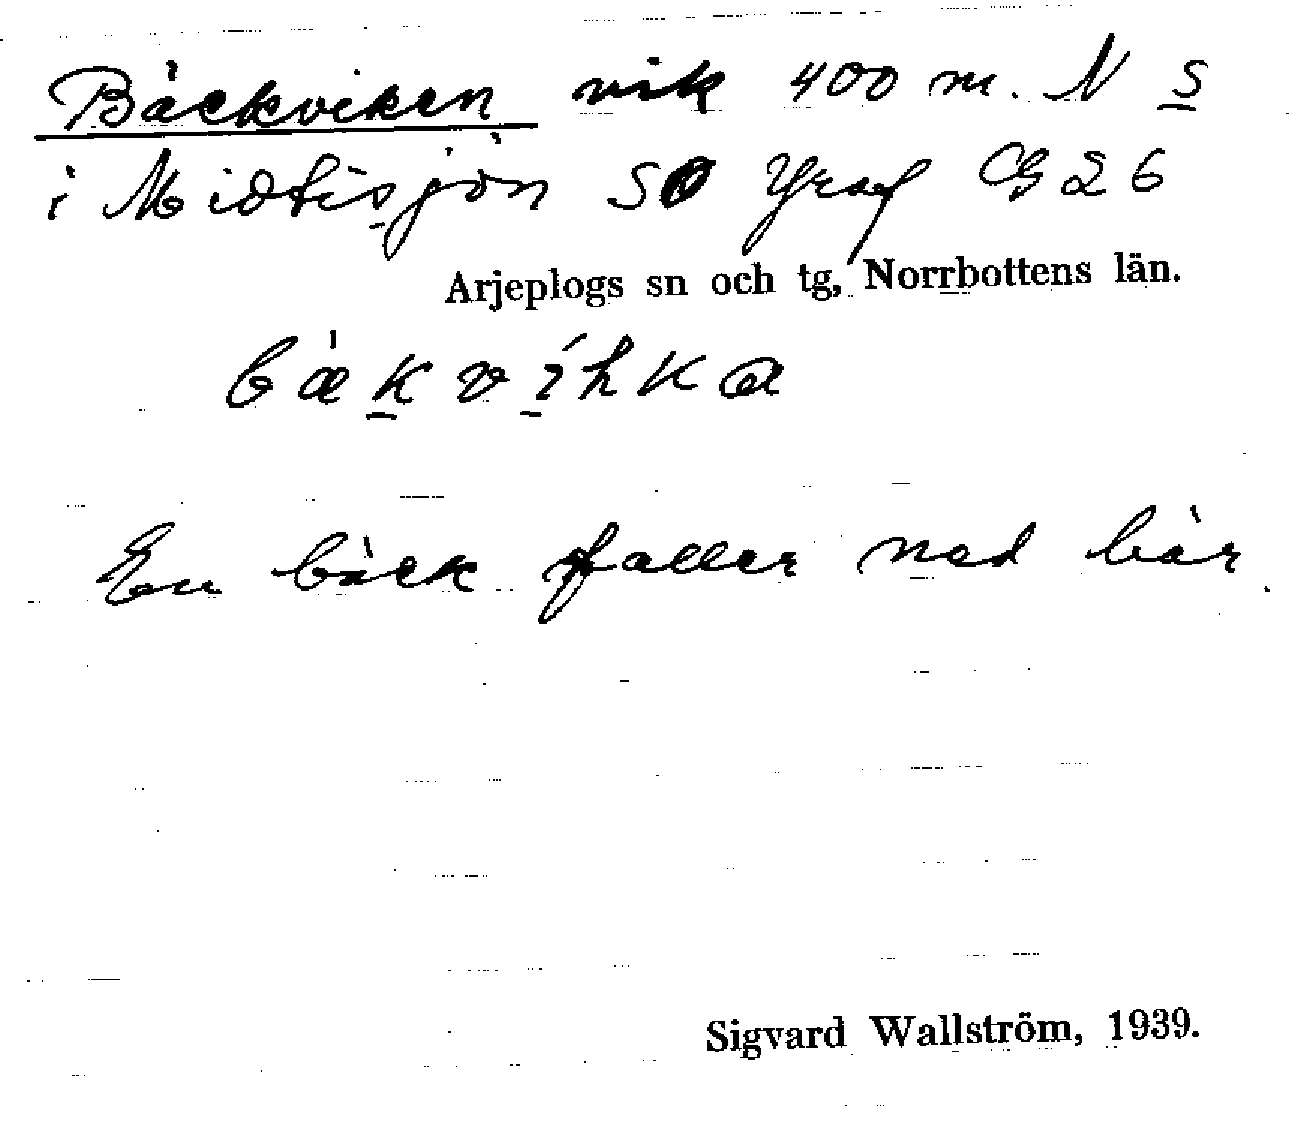 Bäckviken vik 400 m. N S
i Midtisjön SO Yraf G 26
Arjeplogs sn och tg, Norrbottens län.
bækvíhka
En bäck faller ned här.
Sigvard Wallström, 1939.